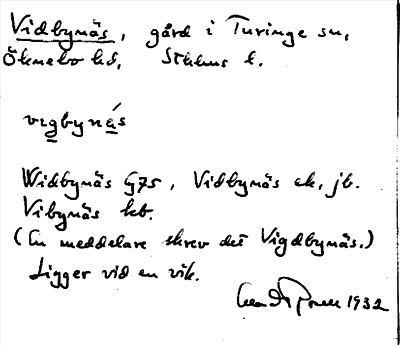 Vidbynäs, gård i Turinge sn,
Öknebo hd, Sthlms l.
vigbynä́s
Widbynäs G75, Vidbynäs ek, jb.
Vibynäs kb.
(En meddelare skrev det Vigdbynäs.)
Ligger vid en vik.
1932